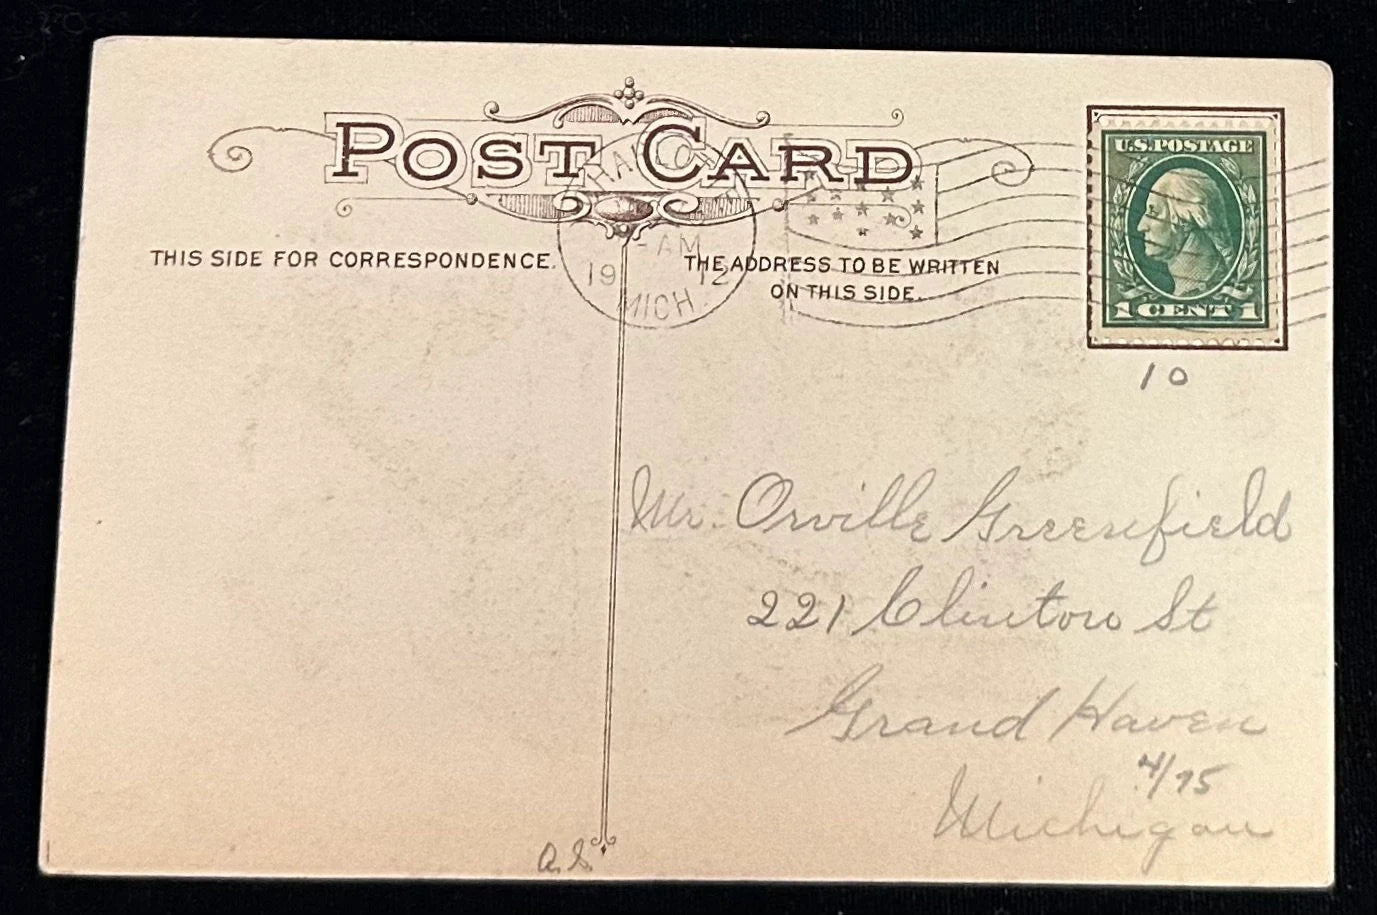 POST CARD
THIS SIDE FOR CORRESPONDENCE.
THE ADDRESS TO BE WRITTEN
ON THIS SIDE.
AM
19 12
MICH
U.S. POSTAGE
1 CENT 1
10
Mr. Orville Greenfield
221 Clinton St
Grand Haven
4/75
Michigan